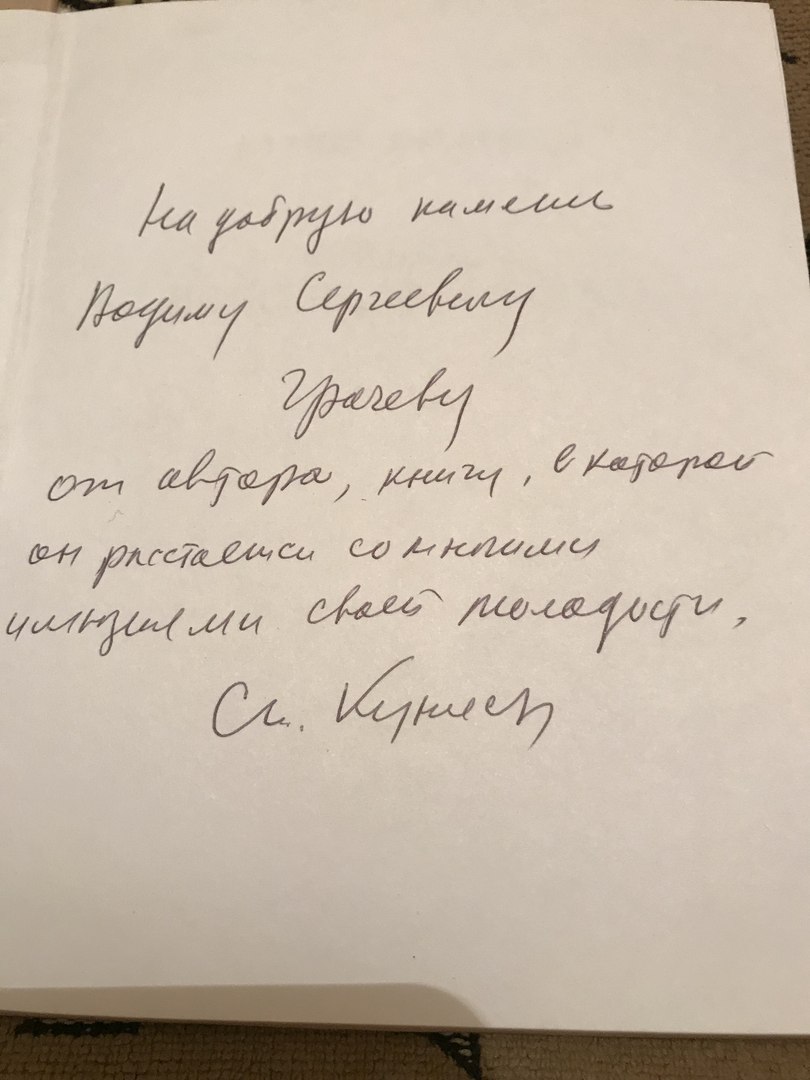 На добрую память
Вадиму Сергеевичу
Грачеву
от автора, книгу, в которой
он расстаётся со многими
иллюзиями своей молодости.
Ст. Куняев